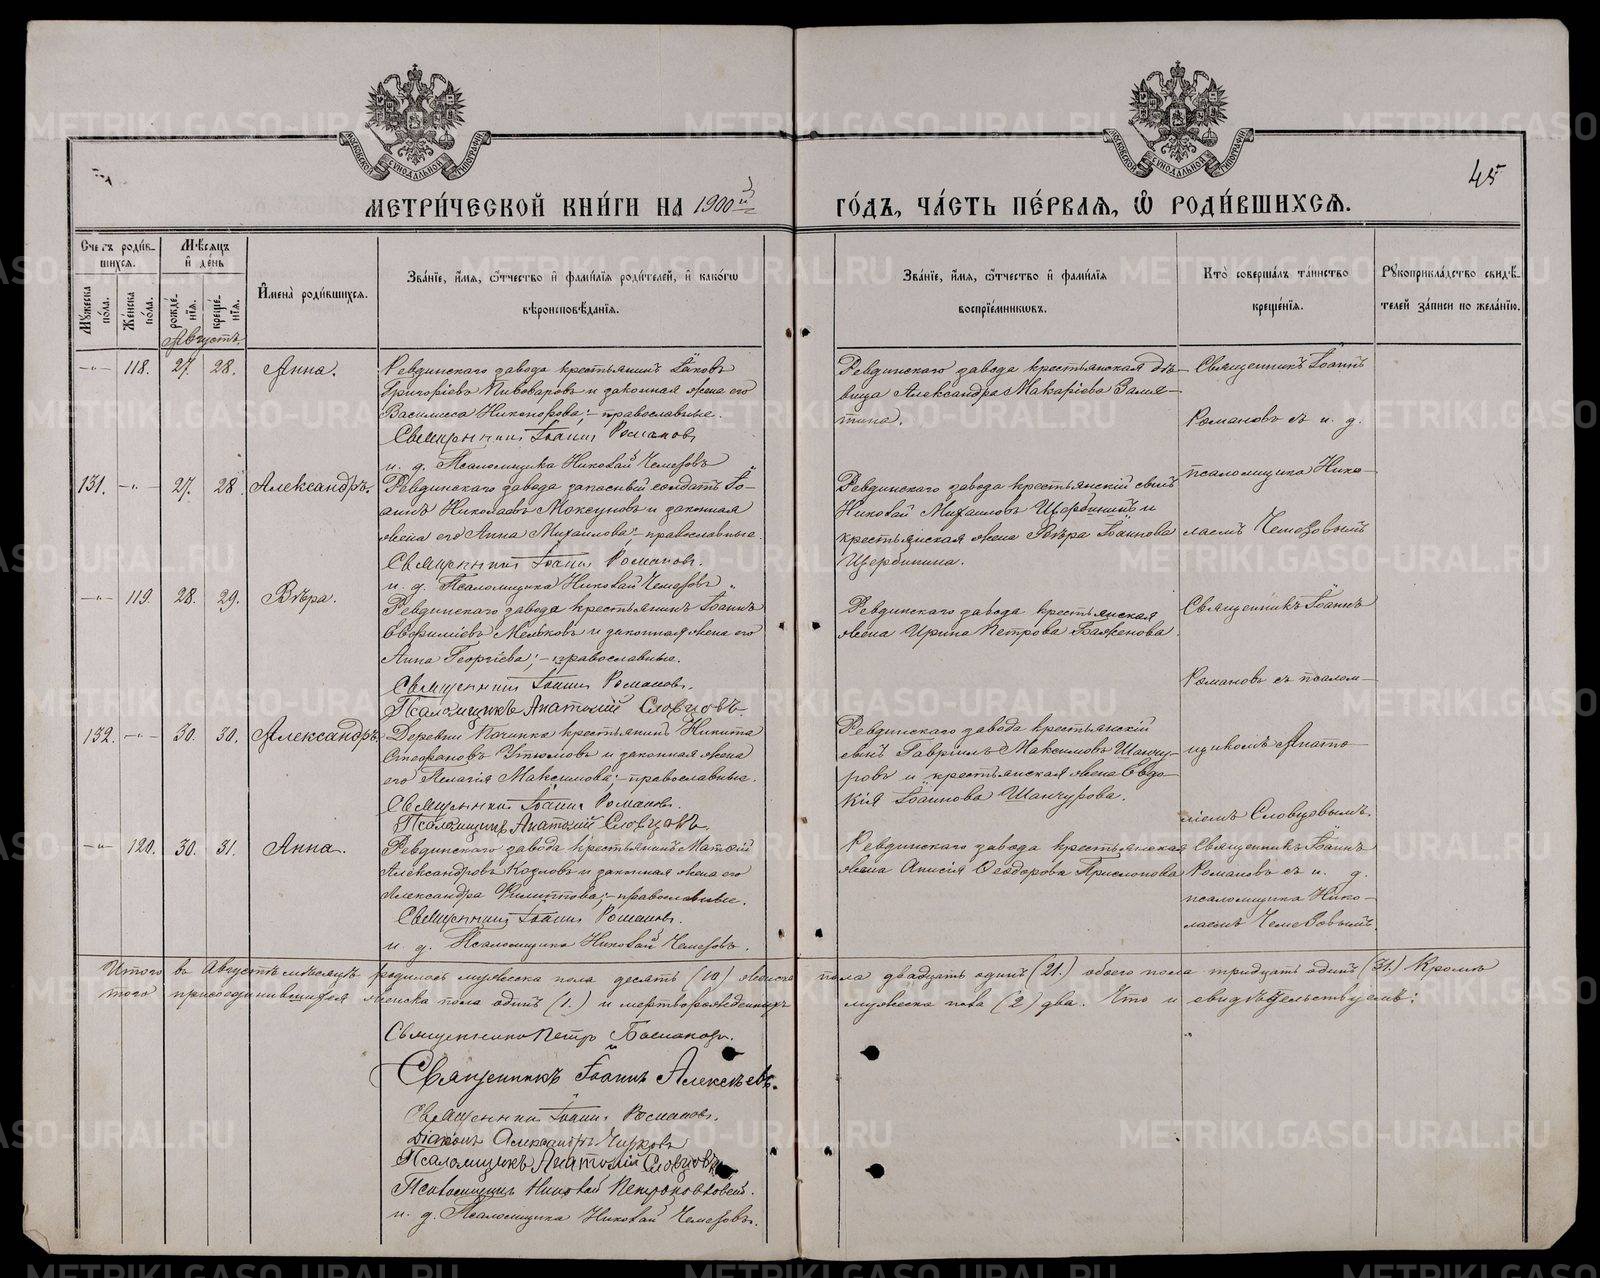 45
МЕТРИ́ЧЕСКОЙ КНИ́ГИ НА 1900й
ГО́ДЪ, ЧА́СТЬ ПЕ́РВАЯ, Ѽ РОДИ́ВШИХСЯ.
Счетъ роди́вшихся.
Мꙋжеска по́ла.
Же́нска по́ла.
Мѣсяцъ и де́нь
рожде́нїя.
креще́нїя.
Имена̀ роди́вшихся.
Зва́нїе, и́мя, ѻ́тчество и фами́лїя роди́телей, и како́гѡ
вѣроисповѣ́данїя.
Зва́нїе, и́мя, ѻ́тчество и фами́лїя
воспрїе́мникѡвъ.
Кто̀ соверша́лъ та́инство
креще́нїя.
Рꙋкоприкла́дство свидѣ́-
телей за́писи по жела́нїю.
Августъ.
-"- 118. 27. 28. Анна.
Ревдинскаго завода крестьянинъ Іаковъ
Григоріевъ Пивоваровъ и законная жена его
Василисса Никонорова; - православные.
Священникъ Іоаннъ Романовъ
и. д. Псаломщика Николай Чемезовъ
Ревдинскаго завода крестьянская дѣ-
вица Александра Макаріева Замя-
тина.
Священникъ Іоаннъ
Романовъ съ и. д.
псаломщика Нико-
лаемъ Чемезовымъ
131. -"- 27. 28. Александръ.
Ревдинскаго завода запасный солдатъ Іо-
аннъ Николаевъ Моксуновъ и законная
жена его Анна Михаилова; - православные.
Священникъ Іоаннъ Романовъ.
и. д. Псаломщика Николай Чемезовъ.
Ревдинскаго завода крестьянскій сынъ
Николай Михаиловъ Щербининъ и
крестьянская жена Вѣра Іоаннова
Щербинина.
-"- 119. 28. 29. Вѣра.
Ревдинскаго завода крестьянинъ Іоаннъ
Евфиміевъ Мелѣховъ и законная жена его
Анна Георгіева; - православные.
Священникъ Іоаннъ Романовъ.
Псаломщикъ Анатолій Словцовъ.
Ревдинскаго завода крестьянская
жена Ирина Петрова Баженова.
Священникъ Іоаннъ
Романовъ съ псалом-
щикомъ Анато-
ліемъ Словцовымъ.
132. -"- 30. 30. Александръ.
Деревни Починка крестьянинъ Никита
Стефановъ Утюмовъ и законная жена
его Пелагія Максимова; - православные.
Священникъ Іоаннъ Романовъ.
Псаломщикъ Анатолій Словцовъ.
Ревдинскаго завода крестьянскій
сынъ Гавріилъ Максимовъ Шанчу-
ровъ и крестьянская жена Евдо-
кія Іоаннова Шанчурова.
-"- 120. 30. 31. Анна.
Ревдинскаго завода крестьянинъ Матѳій
Александровъ Козловъ и законная жена его
Александра Филиппова; - православные.
Священникъ Іоаннъ Романовъ.
и. д. Псаломщика Николай Чемезовъ.
Ревдинскаго завода крестьянская
жена Анисія Ѳеодорова Прислонова
Священникъ Іоаннъ
Романовъ съ и. д.
псаломщика Нико-
лаемъ Чемезовымъ.
Итого въ Августѣ мѣсяцѣ родилось мужеска пола десять (10) женска пола двадцать одинъ (21.) обоего пола тридцать одинъ (31.) Кромѣ
того присоединившихся женска пола одинъ (1.) и мертворожденныхъ мужеска пола (2) два. Что и свидѣтельствуемъ:
Священникъ Петръ Басмановъ.
Священникъ Іоаннъ Алексѣевъ.
Священникъ Іоаннъ Романовъ.
Діаконъ Александръ Чирковъ
Псаломщикъ Анатолій Словцовъ
Псаломщикъ Николай Петропавловскій.
и. д. Псаломщика Николай Чемезовъ.
METRIKI.GASO-URAL.RU